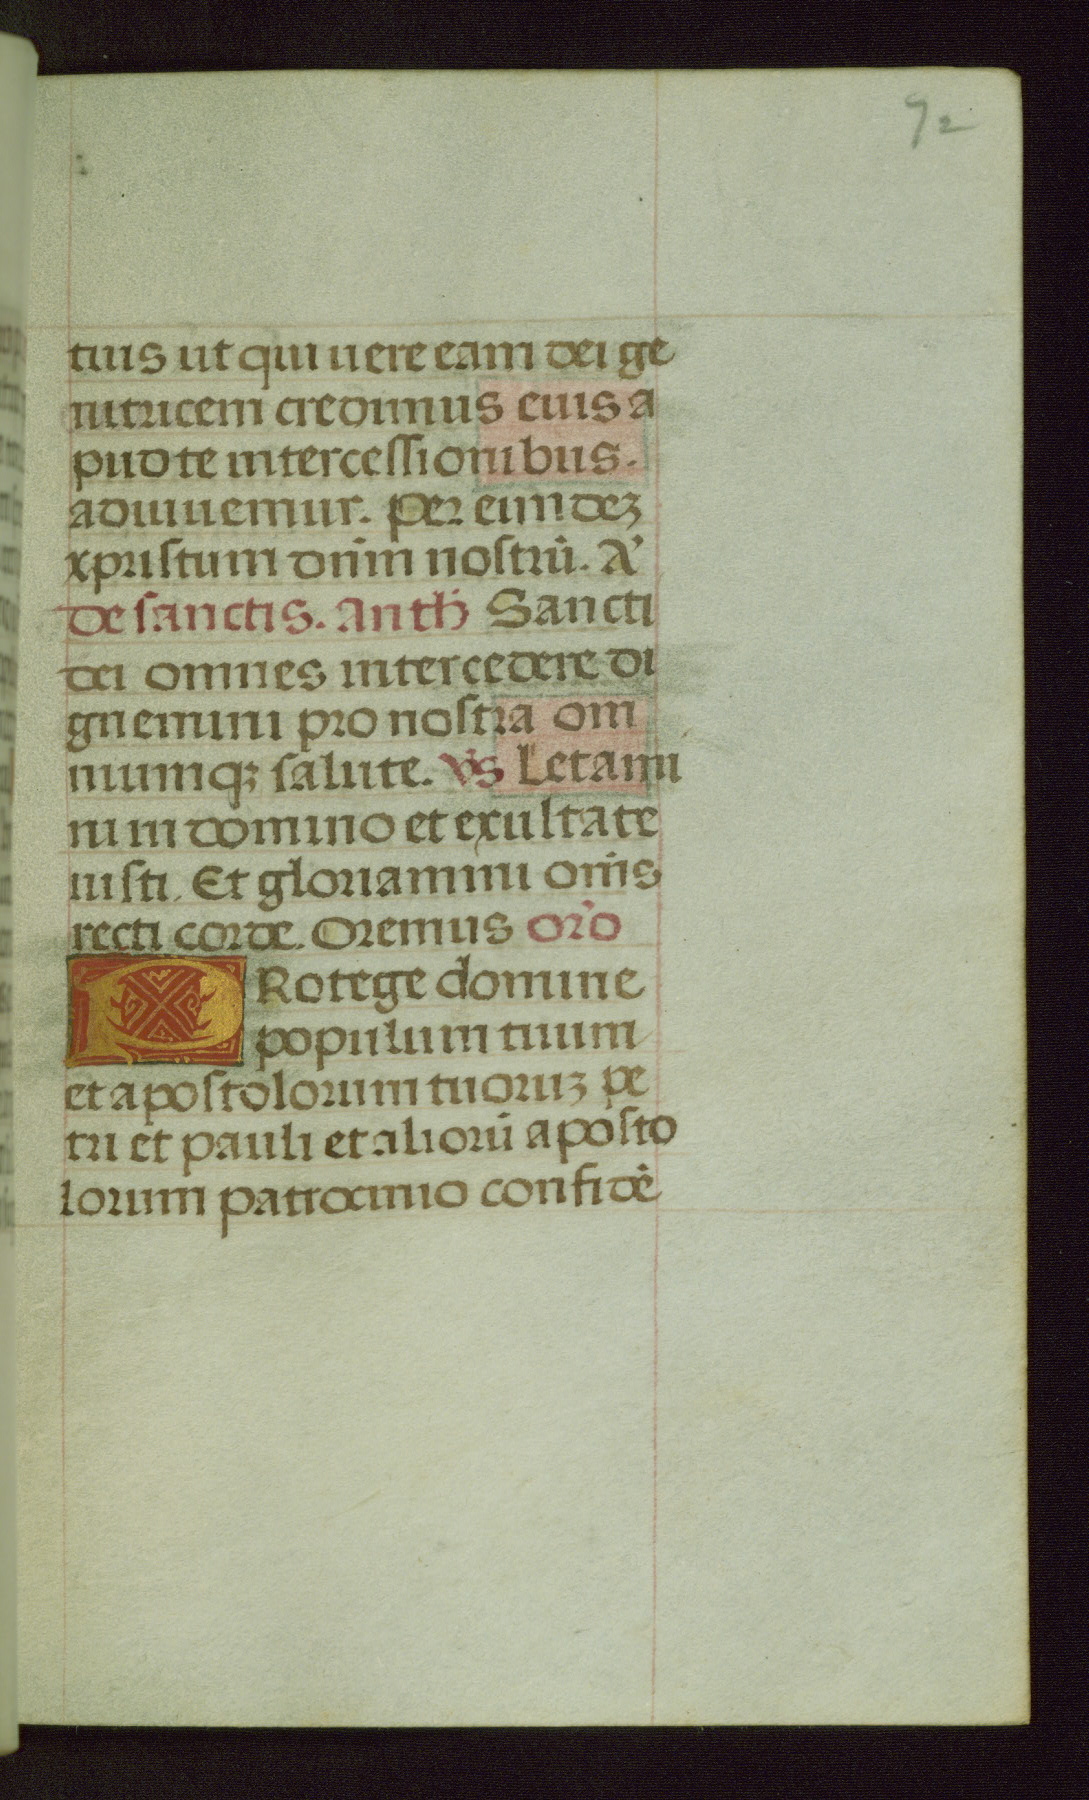 72
tuis ut qui uere eam dei ge
nitricem credimus eius a
pud te intercessionibus.
adiuuemur. per eundeʒ
xpristum dn̄m nostrū. A᷎
de sanctis. Anth̄ Sancti
dei omnes intercedere di
gnemini pro nostra om
niumqʒ salute. v̉s Letami
ni in domino et exultate
iusti. Et gloriamini om̄s
recti corde. Oremus or̉o
PRotege domine
populum tuum
et apostolorum tuoruʒ pe
tri et pauli et aliorū aposto
lorum patrocinio confidē